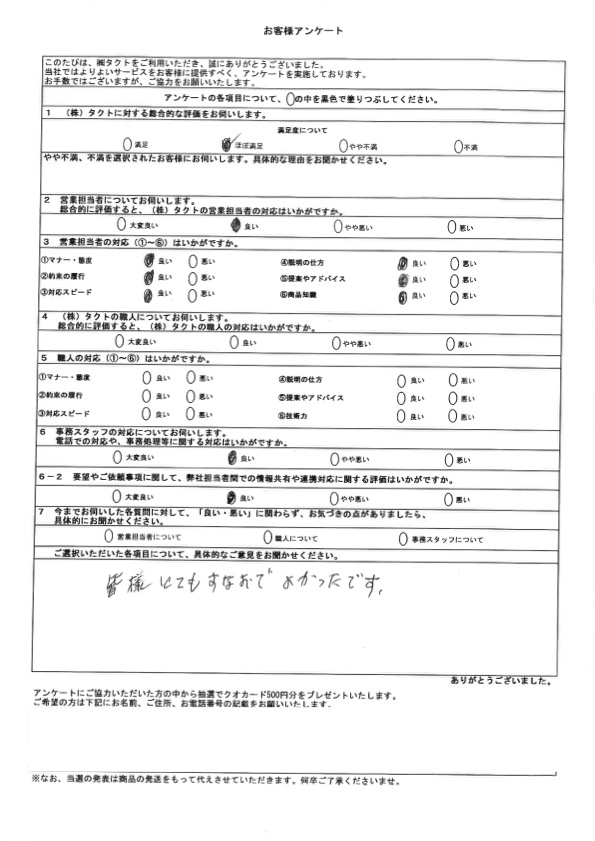 お客様アンケート
このたびは、㈱タクトをご利用いただき、誠にありがとうございました。
当社ではよりよいサービスをお客様に提供すべく、アンケートを実施しております。
お手数ではございますが、ご協力をお願いいたします。
アンケートの各項目について、○の中を黒色で塗りつぶしてください。
1 （株）タクトに対する総合的な評価をお伺いします。
満足度について
満足 ほぼ満足 やや不満 不満
やや不満、不満を選択されたお客様にお伺いします。具体的な理由をお聞かせください。
2 営業担当者についてお伺いします。
総合的に評価すると、（株）タクトの営業担当者の対応はいかがですか。
大変良い 良い やや悪い 悪い
3 営業担当者の対応（①～⑥）はいかがですか。
①マナー・態度 良い 悪い ④説明の仕方 良い 悪い
②約束の履行 良い 悪い ⑤提案やアドバイス 良い 悪い
③対応スピード 良い 悪い ⑥商品知識 良い 悪い
4 （株）タクトの職人についてお伺いします。
総合的に評価すると、（株）タクトの職人の対応はいかがですか。
大変良い 良い やや悪い 悪い
5 職人の対応（①～⑥）はいかがですか。
①マナー・態度 良い 悪い ④説明の仕方 良い 悪い
②約束の履行 良い 悪い ⑤提案やアドバイス 良い 悪い
③対応スピード 良い 悪い ⑥技術力 良い 悪い
6 事務スタッフの対応についてお伺いします。
電話での対応や、事務処理等に関する対応はいかがですか。
大変良い 良い やや悪い 悪い
6－2 要望やご依頼事項に関して、弊社担当者間での情報共有や連携対応に関する評価はいかがですか。
大変良い 良い やや悪い 悪い
7 今までお伺いした各質問に対して、「良い・悪い」に関わらず、お気づきの点がありましたら、
具体的にお聞かせください。
営業担当者について 職人について 事務スタッフについて
ご選択いただいた各項目について、具体的なご意見をお聞かせください。
皆様とてもすなおでよかったです。
ありがとうございました。
アンケートにご協力いただいた方の中から抽選でクオカード500円分をプレゼントいたします。
ご希望の方は下記にお名前、ご住所、お電話番号の記載をお願いいたします。
※なお、当選の発表は商品の発送をもって代えさせていただきます。何卒ご了承くださいませ。